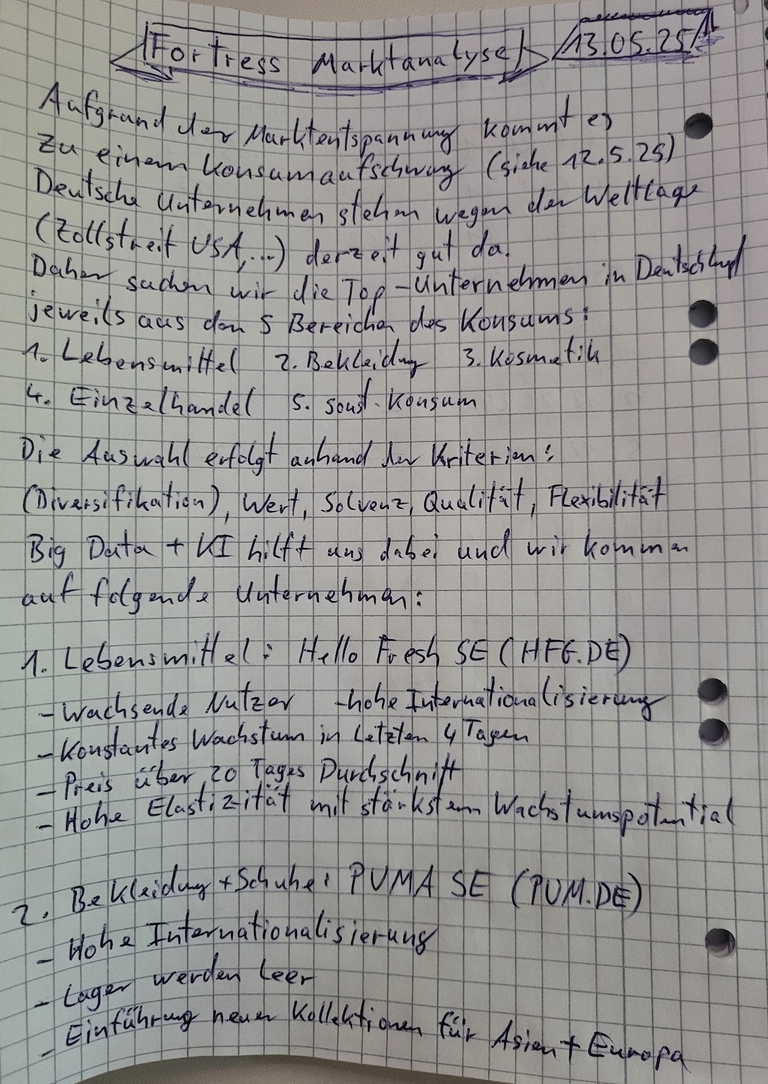 Fortress Marktanalyse 13.05.25
Aufgrund der Marktentspannung kommt es
zu einem Konsumaufschwung (siehe 12.5.25)
Deutsche Unternehmen stehen wegen der Weltlage
(Zollstreit USA,...) derzeit gut da.
Daher suchen wir die Top-Unternehmen in Deutschland
jeweils aus den 5 Bereichen des Konsums:
1. Lebensmittel 2. Bekleidung 3. Kosmetik
4. Einzelhandel 5. sonst. Konsum
Die Auswahl erfolgt anhand der Kriterien:
(Diversifikation), Wert, Solvenz, Qualität, Flexibilität
Big Data + KI hilft uns dabei und wir kommen
auf folgende Unternehmen:
1. Lebensmittel: Hello Fresh SE (HFG.DE)
- Wachsende Nutzer - hohe Internationalisierung
- Konstantes Wachstum in Letzten 4 Tagen
- Preis über 20 Tages Durchschnitt
- Hohe Elastizität mit stärkstem Wachstumspotential
2. Bekleidung + Schuhe: PUMA SE (PUM.DE)
- Hohe Internationalisierung
- Lager werden Leer
- Einführung neuer Kollektionen für Asien + Europa